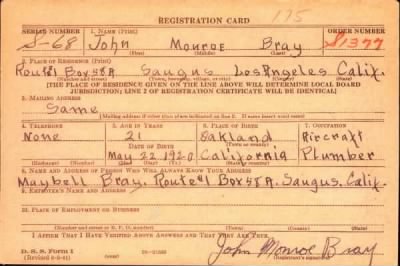 REGISTRATION CARD
175
SERIAL NUMBER 1. NAME (Print) ORDER NUMBER
S-68 John Monroe Bray S1377
(First) (Middle) (Last)
2. PLACE OF RESIDENCE (Print)
Route 1 Box 58A Saugus Los Angeles Calif.
[THE PLACE OF RESIDENCE GIVEN ON THE LINE ABOVE WILL DETERMINE LOCAL BOARD
JURISDICTION; LINE 2 OF REGISTRATION CERTIFICATE WILL BE IDENTICAL]
3. MAILING ADDRESS
Same
[Mailing address if other than place indicated on line 2. If same insert word same]
4. TELEPHONE 5. AGE IN YEARS 6. PLACE OF BIRTH 7. OCCUPATION
None 21 Oakland Aircraft
DATE OF BIRTH (Town or county)
May 22 1920 California Plumber
(Exchange) (Number) (Mo.) (Day) (Yr.) (State or country)
8. NAME AND ADDRESS OF PERSON WHO WILL ALWAYS KNOW YOUR ADDRESS
Maybell Bray, Route #1 Box 58A, Saugus, Calif.
9. EMPLOYER'S NAME AND ADDRESS
10. PLACE OF EMPLOYMENT OR BUSINESS
(Number and street or R. F. D. number) (Town) (County) (State)
I AFFIRM THAT I HAVE VERIFIED ABOVE ANSWERS AND THAT THEY ARE TRUE.
D. S. S. Form 1
John Monroe Bray
(Registrant's signature)